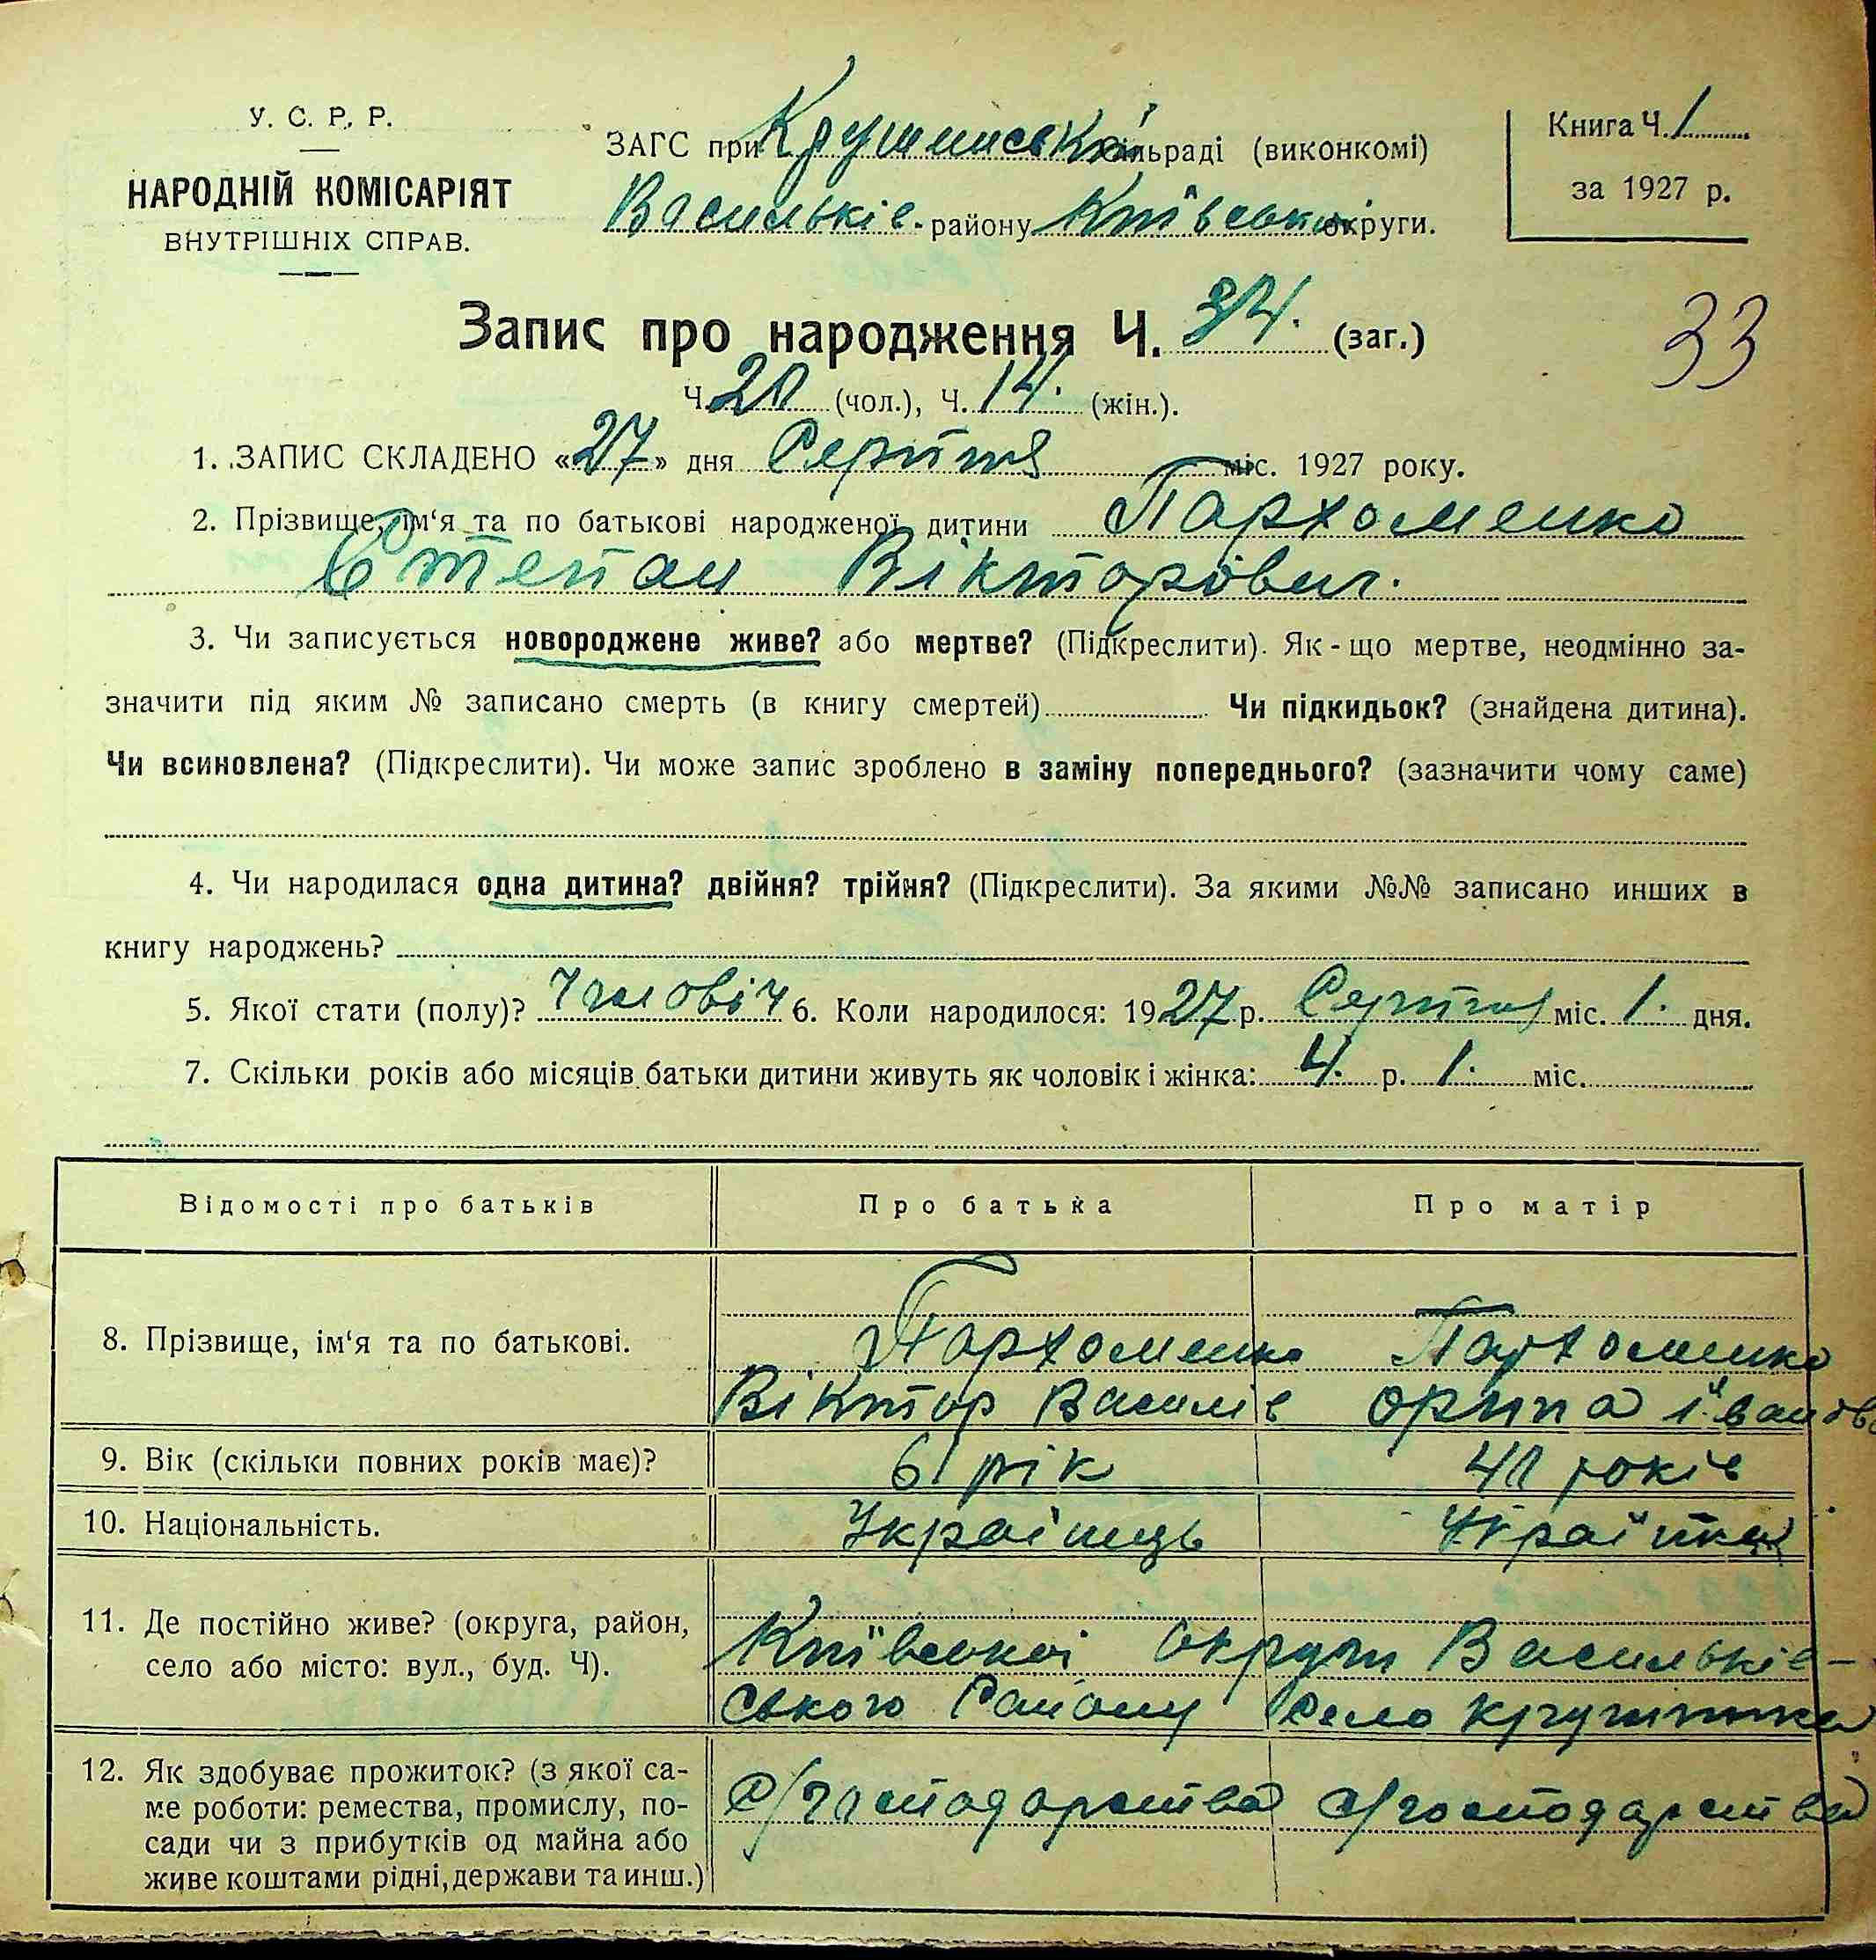 У. С. Р. Р.
НАРОДНІЙ КОМІСАРІЯТ
ВНУТРІШНІХ СПРАВ.
ЗАГС при Крушинській сільраді (виконкомі)
Васильків. району Київської округи.
Книга Ч. 1
за 1927 р.
Запис про народження Ч. 34. (заг.)
33
Ч. 20 (чол.), Ч. 14. (жін.).
1. ЗАПИС СКЛАДЕНО «27» дня Серпня міс. 1927 року.
2. Прізвище, ім‘я та по батькові народженої дитини Пархоменко
Степан Вікторович.
3. Чи записується новороджене живе? або мертве? (Підкреслити). Як-що мертве, неодмінно за-
значити під яким № записано смерть (в книгу смертей) Чи підкидьок? (знайдена дитина).
Чи всиновлена? (Підкреслити). Чи може запис зроблено в заміну попереднього? (зазначити чому саме)
4. Чи народилася одна дитина? двійня? трійня? (Підкреслити). За якими №№ записано инших в
книгу народжень?
5. Якої стати (полу)? Чоловіч 6. Коли народилося: 1927 р. Серпня міс. 1. дня.
7. Скільки років або місяців батьки дитини живуть як чоловік і жінка: 4. р. 1. міс.
Відомості про батьків Про батька Про матір
8. Прізвище, ім‘я та по батькові.
Пархоменко Пархоменко
Віктор Василів Орина Іванов
9. Вік (скільки повних років має)? 61 рік 40 років
10. Національність. Українець Українка
11. Де постійно живе? (округа, район,
село або місто: вул., буд. Ч).
Київської округи Васильків-
ського Району Село Крушинка
12. Як здобуває прожиток? (з якої са-
ме роботи: ремества, промислу, по-
сади чи з прибутків од майна або
живе коштами рідні, держави та инш.)
С/господарства с/господарства